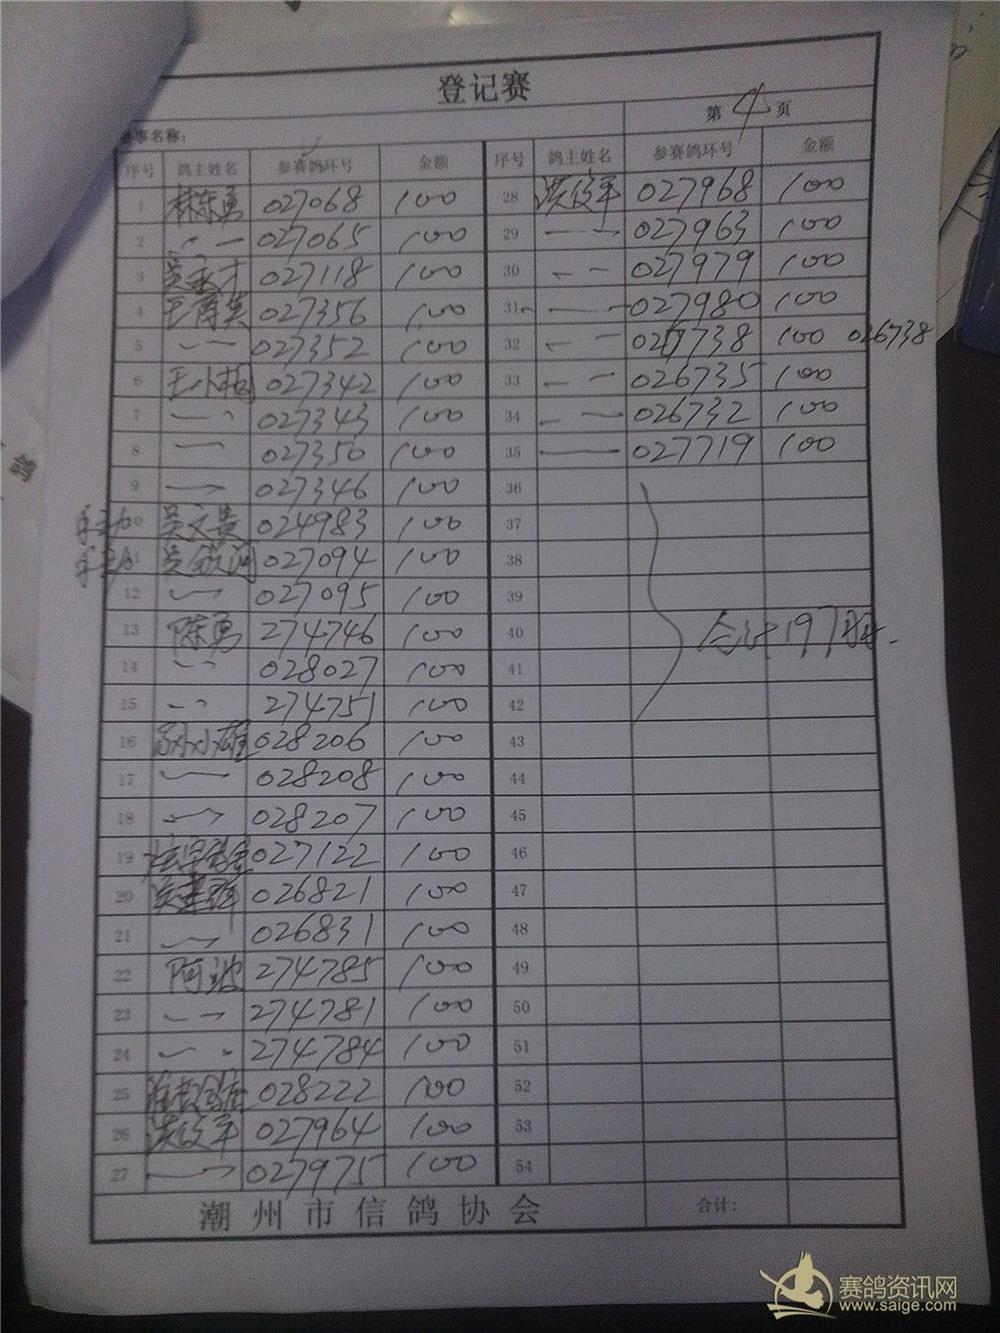 登记赛
第4页
赛事名称:
序号 鸽主姓名 参赛鸽环号 金额 序号 鸽主姓名 参赛鸽环号 金额
1 林东勇 027068 100 28 洪俊军 027968 100
2 027065 100 29 027963 100
3 027118 100 30 027979 100
4 027356 100 31 027980 100
5 027352 100 32 738 100 026738
6 027342 100 33 026735 100
7 027343 100 34 026732 100
8 027350 100 35 027719 100
9 027346 100 36
10 吴文贵 024983 100 37
11 027094 100 38
12 027095 100 39
13 陈勇 274746 100 40 合计197羽.
14 028027 100 41
15 274751 100 42
16 028206 100 43
17 028208 100 44
18 028207 100 45
19 027122 100 46
20 026821 100 47
21 026831 100 48
22 阿波 274785 100 49
23 274781 100 50
24 274784 100 51
25 028222 100 52
26 洪俊军 027964 100 53
27 027975 100 54
潮州市信鸽协会 合计:
鸽
赛鸽资讯网
www.saige.com